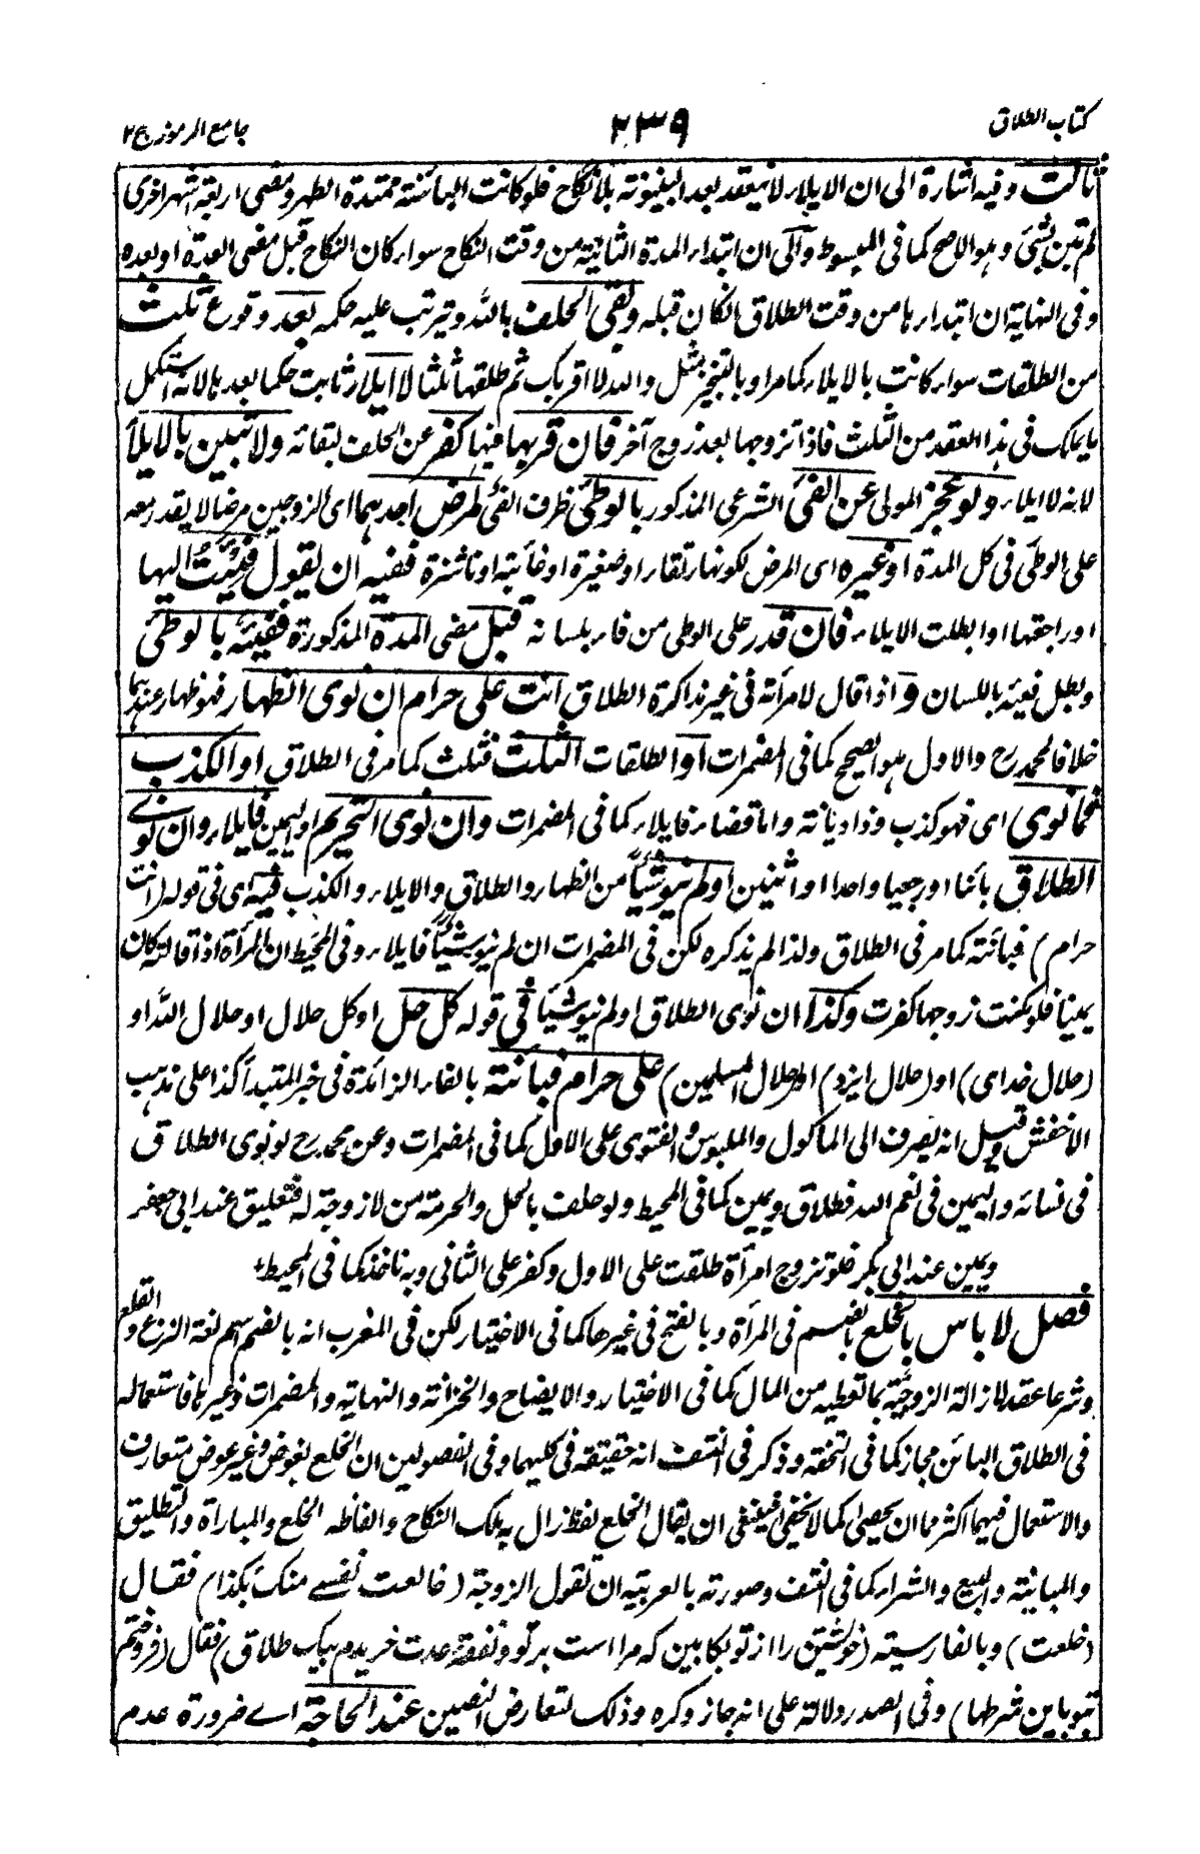 كتاب الطلاق
٢٣٩
جامع الرموز ج٢
ثالث وفيه اشارة الى ان الايلاء لا ينعقد بعد البينونة بلا نكاح فلو كانت البائنة ممتدة الطهر ومضى اربعة اشهر اخرى
لم تبن بشئ وهو الاصح كما فى المبسوط وآلى ان ابتداء المدة الثانية من وقت النكاح سواء كان النكاح قبل مضى العدة او بعده
وفى النهاية ان ابتداءها من وقت الطلاق ان كان قبله وبقى الحلف بالله ويترتب عليه حكمه بعد وقوع ثلث
من الطلقات سواء كانت بالايلاء كما مر او بالتنجيز مثل والله لا اقربك ثم طلقها ثلثا لا ايلاء ثابت حكما بعدها لانه استكمل
ما يملك فى هذا العقد من الثلث فاذا تزوجها بعد زوج آخر فان قربها فيها كفر عن الحلف لبقائه ولا تبين بالايلاء
لانه لا ايلاء ولو عجز المولى عن الفئ الشرعى المذكور بالوطئ ظرف الفئ لمرض احدهما اى الزوجين مرضا لا يقدر معه
على الوطئ فى كل المدة او غيره اى المرض لكونها رتقاء او صغيرة او غائبة او ناشزة ففيه ان يقول فئت اليها
او راجعتها او ابطلت الايلاء فان قدر على الوطى من فاء بلسانه قبل مضى المدة المذكورة ففيئه بالوطئ
وبطل فيئه باللسان و اذا قال لامرأته فى غير مذاكرة الطلاق انت على حرام ان نوى الظهار فهو ظهار عندهما
خلافا لمحمد رح والاول هو الصحيح كما فى المضمرات او الطلقات الثلث فثلث كما مر فى الطلاق او الكذب
فما نوى اى فهو كذب وذا ديانة واما قضاء فايلاء كما فى المضمرات وان نوى التحريم او اليمين فايلاء وان نوى
الطلاق بائنا او رجعيا واحدا او اثنين او لم ينو شيئا من الظهار والطلاق والايلاء والكذب فيه اى فى قوله (انت
حرام) فبائنة كما مر فى الطلاق ولذا لم يذكره لكن فى المضمرات ان لم ينو شيئا فايلاء وفى المحيط ان المرأة اذا قالته كان
يمينا فلو مكنت زوجها كفرت وكذا ان نوى الطلاق او لم ينو شيئا فى قوله كل حل او كل حلال او حلال الله او
(حلال خداى) او (حلال ايزد) او (حلال المسلمين) على حرام فبائنة بالفاء الزائدة فى خبر المبتدأ كذا على مذهب
الاخفش وقيل انه يصرف الى الماكول والملبوس والفتوى على الاول كما فى المضمرات وعن محمد رح لو نوى الطلاق
فى نسائه واليمين فى نعم الله فطلاق ويمين كما فى المحيط ولو حلف بالحل والحرمة من لا زوجة له فتعليق عند ابى جعفر
ويمين عند ابى بكر فلو تزوج امرأة طلقت على الاول وكفر على الثانى وبه ناخذ كما فى المحيط
فصل لا باس بالخلع بالضم فى المرأة وبالفتح فى غيرها كما فى الاختيار لكن فى المغرب انه بالضم اسم لغة النزع والقلع
وشرعا عقد لازالة الزوجية بما تعطيه من المال كما فى الاختيار والايضاح والخزانة والنهاية والمضمرات وغيرها فاستعماله
فى الطلاق البائن مجاز كما فى التحفة وذكر فى النتف انه حقيقة فى كليهما وفى الفصولين ان الخلع بعوض وغير عوض متعارف
والاستعمال فيهما اكثر مما ان يحصى كما لا يخفى فينبغى ان يقال الخلع لفظ زال به ملك النكاح والفاظه الخلع والمباراة والتطليق
والمباينة والبيع والشراء كما فى النتف وصورته بالعربية ان تقول الزوجة (خالعت نفسى منك بكذا) فقال
(خلعت) وبالفارسية (خويشتن را از تو بكابين كه مراست بر تو ونفقة عدت خريدم بيك طلاق) فقال (فروختم
بتو باين شرطها) وفى الصدر دلالة على انه جاز وكره وذلك لتعارض النصين عند الحاجة اے ضرورة عدم